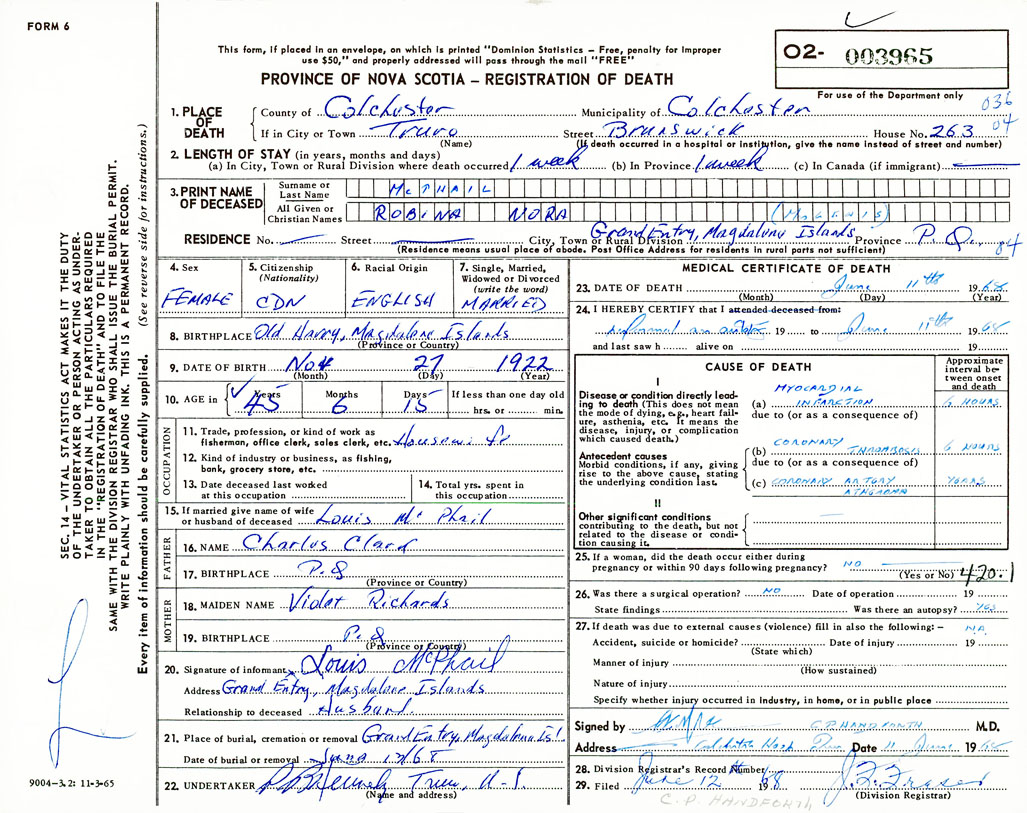 FORM 6
This form, if placed in an envelope, on which is printed "Dominion Statistics – Free, penalty for improper
use $50," and properly addressed will pass through the mail "FREE"
PROVINCE OF NOVA SCOTIA – REGISTRATION OF DEATH
O2- 003965
For use of the Department only
036
04
1. PLACE OF DEATH
County of Colchester Municipality of Colchester
If in City or Town Truro Street Brunswick House No. 263
(Name) (If death occurred in a hospital or institution, give the name instead of street and number)
2. LENGTH OF STAY (in years, months and days)
(a) In City, Town or Rural Division where death occurred 1 week (b) In Province 1 week (c) In Canada (if immigrant)
3. PRINT NAME OF DECEASED
Surname or Last Name McPHAIL
All Given or Christian Names ROBINA NORA
RESIDENCE No. Street City, Town or Rural Division Grand Entry, Magdalene Islands Province P. Q.
(Residence means usual place of abode. Post Office Address for residents in rural parts not sufficient)
84
4. Sex
FEMALE
5. Citizenship
(Nationality)
CDN
6. Racial Origin
ENGLISH
7. Single, Married,
Widowed or Divorced
(write the word)
MARRIED
8. BIRTHPLACE Old Harry, Magdalene Islands
(Province or Country)
9. DATE OF BIRTH Nov 27 1922
(Month) (Day) (Year)
10. AGE in Years Months Days If less than one day old
45 6 15 hrs. or min.
OCCUPATION
11. Trade, profession, or kind of work as
fisherman, office clerk, sales clerk, etc. Housewife
12. Kind of industry or business, as fishing,
bank, grocery store, etc.
13. Date deceased last worked
at this occupation
14. Total yrs. spent in
this occupation
15. If married give name of wife
or husband of deceased Louis McPhail
FATHER
16. NAME Charles Clark
17. BIRTHPLACE P.Q
(Province or Country)
MOTHER
18. MAIDEN NAME Violet Richards
19. BIRTHPLACE P.Q
(Province or Country)
20. Signature of informant Louis McPhail
Address Grand Entry, Magdalene Islands
Relationship to deceased Husband
21. Place of burial, cremation or removal Grand Entry, Magdalene Isl.
Date of burial or removal June 12/68
22. UNDERTAKER
(Name and address)
MEDICAL CERTIFICATE OF DEATH
23. DATE OF DEATH June 11th 1968
(Month) (Day) (Year)
24. I HEREBY CERTIFY that I attended deceased from:
performed an autopsy 19 to June 11th 1968
and last saw h alive on 19
CAUSE OF DEATH
Approximate interval between onset and death
I
Disease or condition directly leading
to death (This does not mean
the mode of dying, e.g., heart failure,
asthenia, etc. It means the
disease, injury, or complication
which caused death.)
MYOCARDIAL
(a) INFARCTION 6 HOURS
due to (or as a consequence of)
Antecedent causes
Morbid conditions, if any, giving
rise to the above cause, stating
the underlying condition last.
CORONARY
(b) THROMBOSIS 6 HOURS
due to (or as a consequence of)
(c) CORONARY ARTERY YEARS
ATHEROMA
II
Other significant conditions
contributing to the death, but not
related to the disease or condition
causing it.
25. If a woman, did the death occur either during
pregnancy or within 90 days following pregnancy? NO
(Yes or No) 420.1
26. Was there a surgical operation? NO Date of operation 19
State findings Was there an autopsy? YES
27. If death was due to external causes (violence) fill in also the following: – NA
Accident, suicide or homicide? Date of injury 19
(State which)
Manner of injury
(How sustained)
Nature of injury
Specify whether injury occurred in industry, in home, or in public place
Signed by C.P. HANDFORTH M.D.
Address Colchester Hosp Date 11 June 1968
28. Division Registrar's Record Number
29. Filed June 12 1968 J. F. Fraser
(Division Registrar)
C. P. HANDFORTH
SEC. 14 – VITAL STATISTICS ACT MAKES IT THE DUTY
OF THE UNDERTAKER OR PERSON ACTING AS UNDERTAKER
TO OBTAIN ALL THE PARTICULARS REQUIRED
IN THE "REGISTRATION OF DEATH" AND TO FILE THE
SAME WITH THE DIVISION REGISTRAR WHO SHALL ISSUE THE BURIAL PERMIT.
WRITE PLAINLY WITH UNFADING INK. THIS IS A PERMANENT RECORD.
Every item of information should be carefully supplied. (See reverse side for instructions.)
9004–3.2: 11-3-65